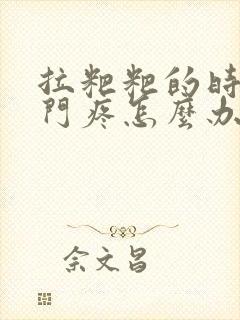 拉粑粑的時
門疼怎麼办
余文昌